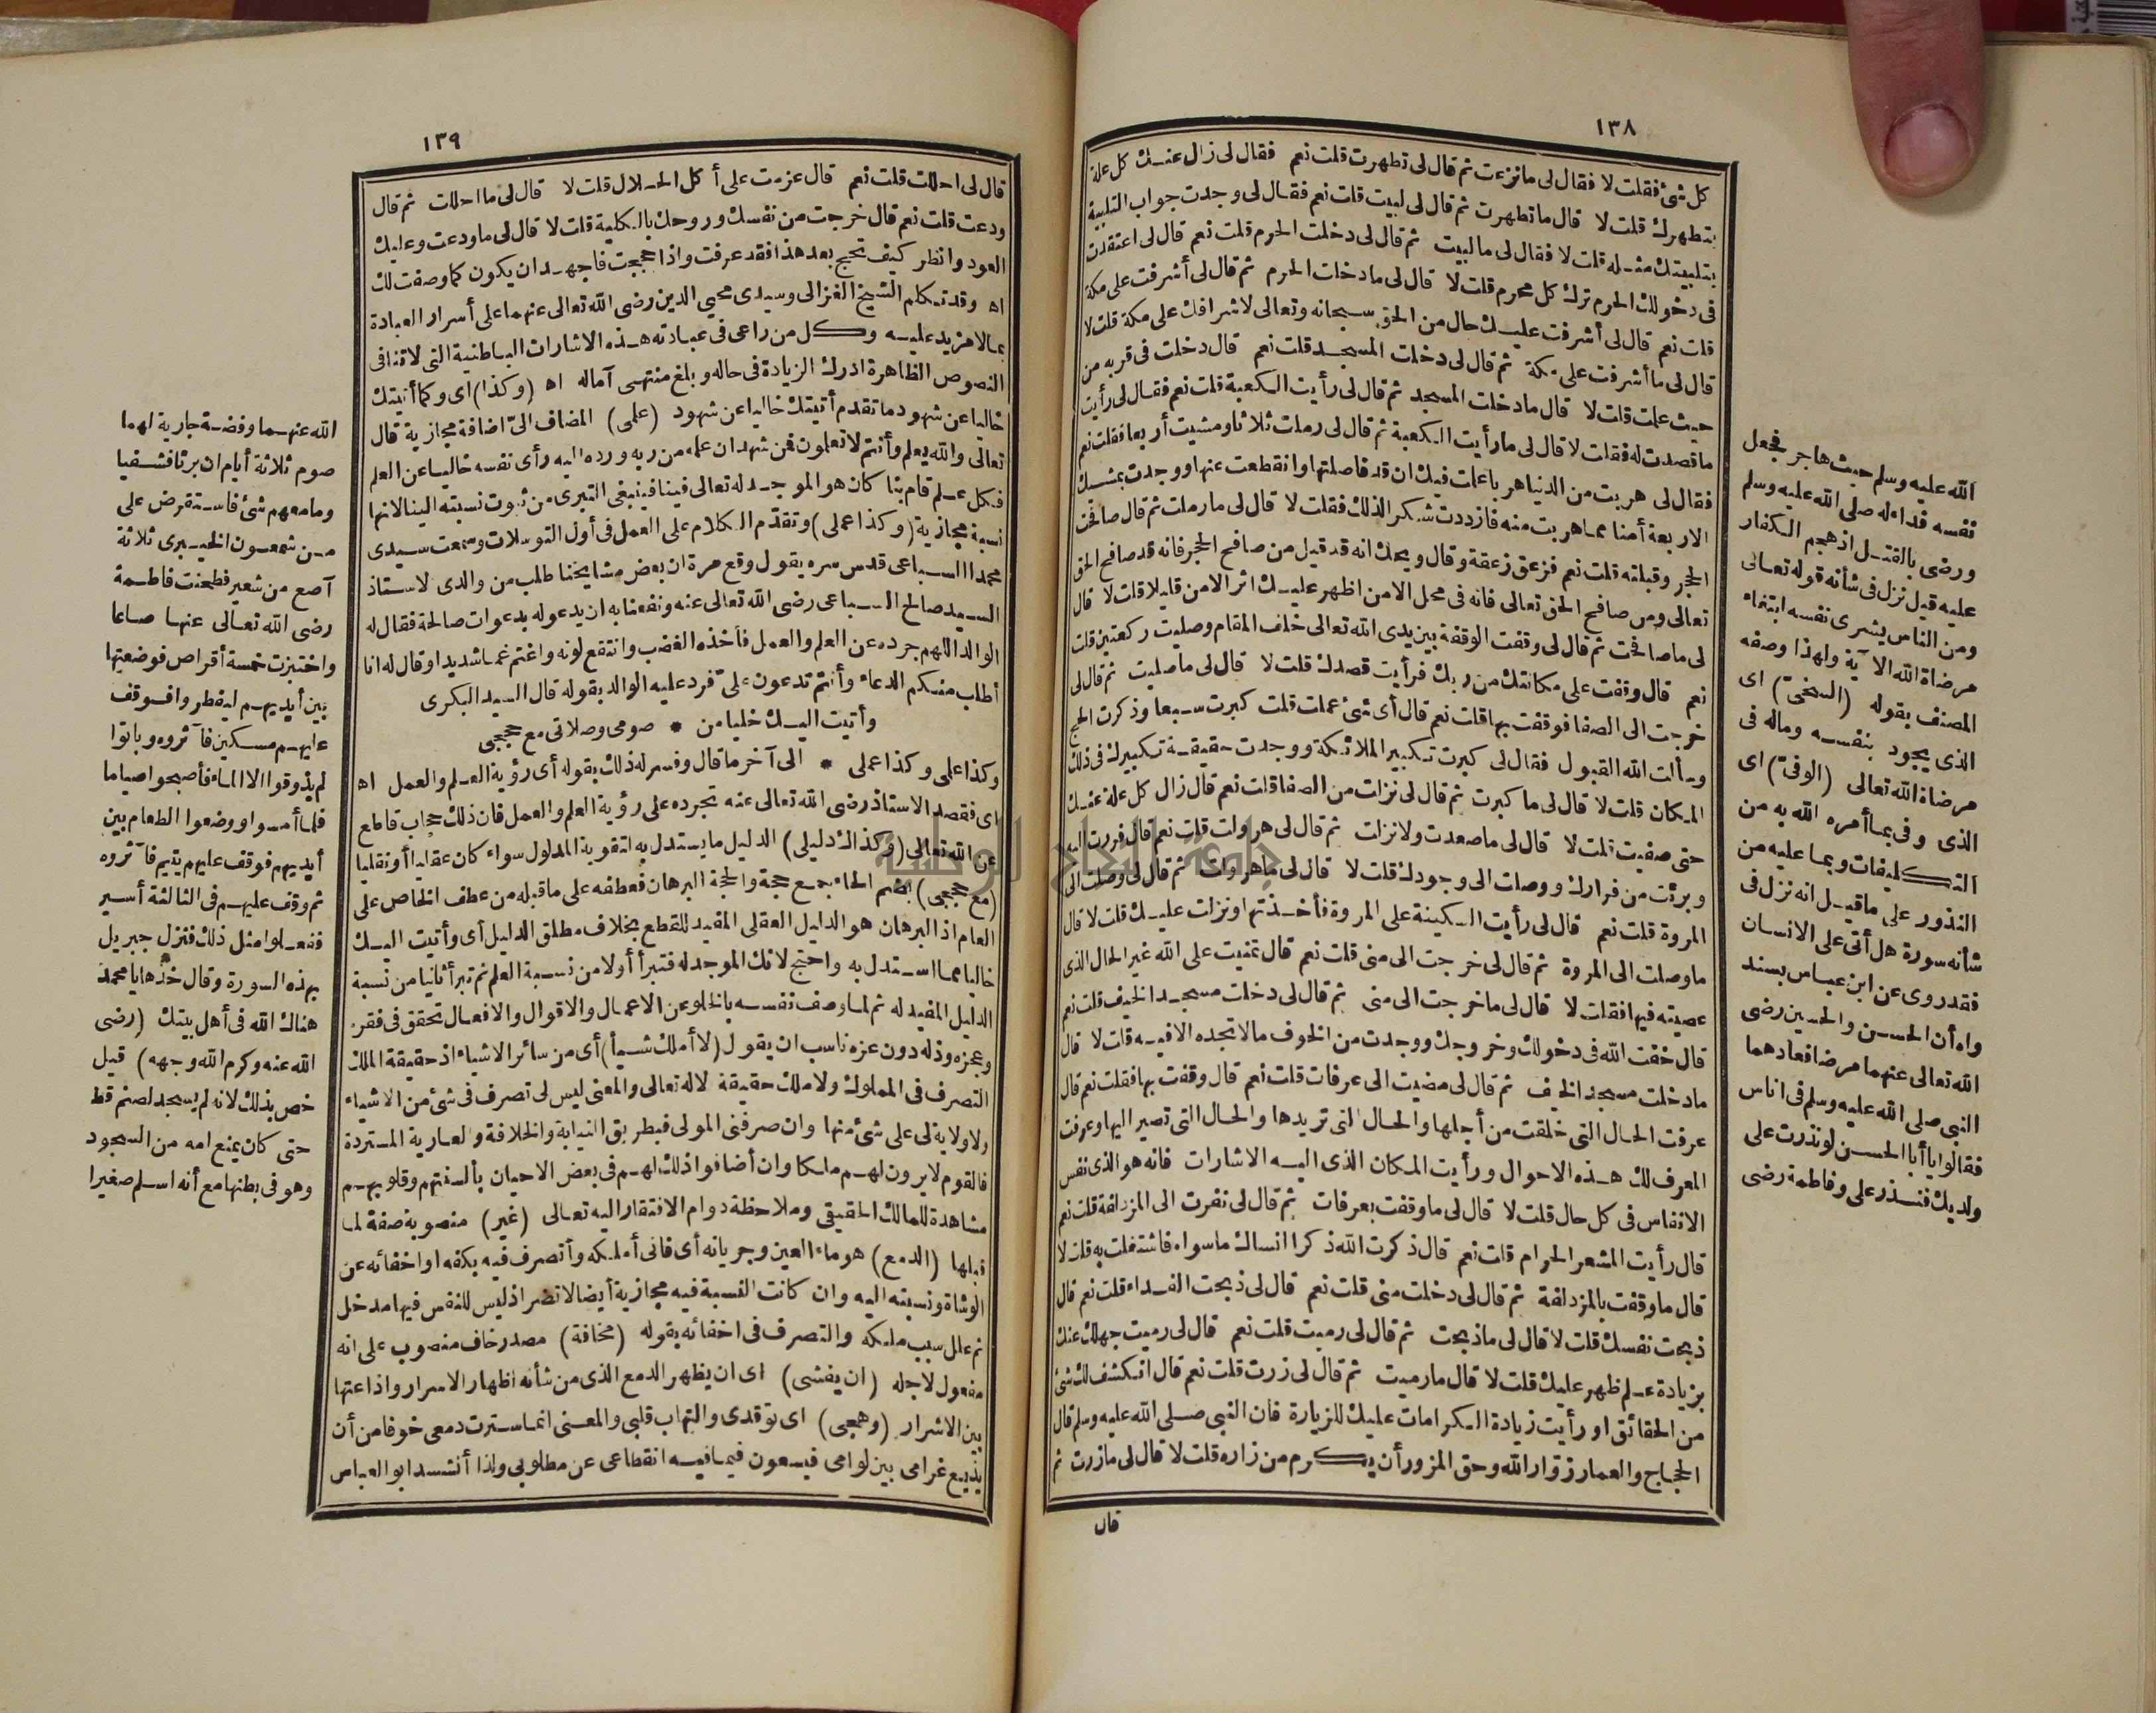 ١٣٨
كل شئ فقلت لا فقال لى مانزعت ثم قال لى تطهرت قلت نعم فقال لى زال عنك كل علة
بتطهرك قلت لا قال ما تطهرت ثم قال لى لبيت قلت نعم فقال لى وجدت جواب التلبية
بتلبيتك مثله قلت لا فقال لى مالبيت ثم قال لى دخلت الحرم قلت نعم قال لى اعتقدت
فى دخولك الحرم ترك كل محرم قلت لا قال لى مادخلت الحرم ثم قال لى أشرفت على مكة
قلت نعم قال لى أشرفت عليك حال من الحق سبحانه وتعالى لاشرافك على مكة قلت لا
قال لى ما أشرفت على مكة ثم قال لى دخلت المسجد قلت نعم قال دخلت فى قربه من
حيث علمت قلت لا قال مادخلت المسجد ثم قال لى رأيت الكعبة قلت نعم فقال لى رأيت
ماقصدت له فقلت لا قال لى مارأيت الكعبة ثم قال لى رملت ثلاثا ومشيت أربعا فقلت نعم
فقال لى هربت من الدنيا هربا علمت فيك ان قد فاصلتها وانقطعت عنها ووجدت بمشيك
الاربعة أمنا مما هربت منه فازددت شكر الذلك فقلت لا قال لى مارملت ثم قال صافحت
الحجر وقبلته قلت نعم فزعق زعقة وقال ويحك انه قد قيل من صافح الحجر فانه قد صافح الحق
تعالى ومن صافح الحق تعالى فانه فى محل الامن اظهر عليك اثر الامن قليلا قلت لا قال
لى ماصافحت ثم قال لى وقفت الوقفة بين يدى الله تعالى خلف المقام وصليت ركعتين قلت
نعم قال وقفت على مكانتك من ربك فرأيت قصدك قلت لا قال لى ماصليت ثم قال لى
خرجت الى الصفا فوقفت بها قلت نعم قال أى شئ عملت قلت كبرت سبعا وذكرت الحج
وسألت الله القبول فقال لى كبرت تكبير الملائكة ووجدت حقيقة تكبيرك فى ذلك
المكان قلت لا قال لى ما كبرت ثم قال لى نزلت من الصفا قلت نعم قال زال كل علة عنك
حتى صفيت قلت لا قال لى ماصعدت ولا نزلت ثم قال لى هرولت قلت نعم قال فررت اليه
وبرئت من فرارك ووصلت الى وجودك قلت لا قال لى ماهرولت ثم قال لى وصلت الى
المروة قلت نعم قال لى رأيت السكينة على المروة فأخذتها ونزلت عليك قلت لا قال
ماوصلت الى المروة ثم قال لى خرجت الى منى قلت نعم قال تمنيت على الله غير الحال الذى
عصيته فيها فقلت لا قال لى ماخرجت الى منى ثم قال لى دخلت مسجد الخيف قلت نعم
قال خفت الله فى دخولك وخروجك ووجدت من الخوف مالا تجده الا فيه قلت لا قال
مادخلت مسجد الخيف ثم قال لى مضيت الى عرفات قلت نعم قال وقفت بها فقلت نعم قال
عرفت الحال التى خلقت من أجلها والحال التى تريدها والحال التى تصير اليها وعرفت
المعرف لك هذه الاحوال ورأيت المكان الذى اليه الاشارات فانه هو الذى نفس
الانفاس فى كل حال قلت لا قال لى ماوقفت بعرفات ثم قال لى نفرت الى المزدلفة قلت نعم
قال رأيت المشعر الحرام قلت نعم قال ذكرت الله ذكرا انساك ماسواه فاشتغلت به قلت لا
قال ماوقفت بالمزدلفة ثم قال لى دخلت منى قلت نعم قال لى ذبحت الفداء قلت نعم قال
ذبحت نفسك قلت لا قال لى ماذبحت ثم قال لى رميت قلت نعم قال لى رميت جهلك عنك
بزيادة علم ظهر عليك قلت لا قال مارميت ثم قال لى زرت قلت نعم قال انكشف لك شئ
من الحقائق او رأيت زيادة الكرامات عليك للزيارة فان النبى صلى الله عليه وسلم قال
الحجاج والعمار زوار الله وحق المزور أن يكرم من زاره قلت لا قال لى مازرت ثم
قال
الله عليه وسلم حيث هاجر فجعل
نفسه فداءله صلى الله عليه وسلم
ورضى بالقتل اذ هجم الكفار
عليه قيل نزل فى شأنه قوله تعالى
ومن الناس يشرى نفسه ابتغاء
مرضاة الله الآية ولهذا وصفه
المصنف بقوله (السخىّ) اى
الذى يجود بنفسه وماله فى
مرضاة الله تعالى (الوفىّ) اى
الذى وفى بما أمره الله به من
التكليفات وبما عليه من
النذور على ماقيل انه نزل فى
شأنه سورة هل أتى على الانسان
فقد روى عن ابن عباس بسند
واه أن الحسن والحسين رضى
الله تعالى عنهما مرضا فعادهما
النبى صلى الله عليه وسلم فى اناس
فقالوا يا أبا الحسن لو نذرت على
ولديك فنذر على وفاطمة رضى
١٣٩
قال لى احللت قلت نعم قال عزمت على أكل الحلال قلت لا قال لى ما احللت ثم قال
ودعت قلت نعم قال خرجت من نفسك وروحك بالكلية قلت لا قال لى ماودعت وعليك
العود وانظر كيف تحج بعد هذا فقد عرفت واذا حججت فاجهد ان يكون كما وصفت لك
اه وقد تكلم الشيخ الغزالى وسيدى محيى الدين رضى الله تعالى عنهما على أسرار العبادة
بمالا مزيد عليه وكل من راعى فى عبادته هذه الاشارات الباطنية التى لاتنافى
النصوص الظاهرة ادرك الزيادة فى حاله وبلغ منتهى آماله اه (وكذا) اى وكما أتيتك
خاليا عن شهود ما تقدم أتيتك خاليا عن شهود (علمى) المضاف الىّ اضافة مجازية قال
تعالى والله يعلم وأنتم لا تعلمون فمن شهد ان علمه من ربه ورده اليه رأى نفسه خاليا عن العلم
فكل علم قام بنا كان هو الموجد له تعالى فينا فينبغى التبرى من ثبوت نسبته الينا لانها
نسبة مجازية (وكذا عملى) وتقدّم الكلام على العمل فى أول التوسلات وسمعت سيدى
محمدا السباعى قدس سره يقول وقع مرة ان بعض مشايخنا طلب من والدى الاستاذ
السيد صالح السباعى رضى الله تعالى عنه ونفعنا به ان يدعو له بدعوات صالحة فقال له
الوالد اللهم جرده عن العلم والعمل فأخذه الغضب وانتقع لونه واغتم غما شديدا وقال له انا
أطلب منكم الدعاء وأنتم تدعون علىّ فرد عليه الوالد بقوله قال السيد البكرى
وأتيت اليك خليا من * صومى وصلاتى مع حججى
وكذا علمى وكذا عملى * الى آخر ماقال وفسر له ذلك بقوله أى رؤية العلم والعمل اه
اى فقصد الاستاذ رضى الله تعالى عنه تجرده على رؤية العلم والعمل فان ذلك حجاب قاطع
عن الله تعالى (وكذاك دليلى) الدليل مايستدل به لتقوية المدلول سواء كان عقليا أو نقليا
(مع حججى) بضم الحاء جمع حجة والحجة البرهان فعطفه على ماقبله من عطف الخاص على
العام اذ البرهان هو الدليل العقلى المفيد للقطع بخلاف مطلق الدليل أى وأتيت اليك
خاليا مما استدل به واحتج لانك الموجد له فتبرأ أولا من نسبة العلم ثم تبرأ ثانيا من نسبة
الدليل المفيد له ثم لما وصف نفسه بالخلو عن الاعمال والاقوال والافعال تحقق فى فقره
وعجزه وذله دون عزه ناسب ان يقول (لا أملك شيأ) أى من سائر الاشياء اذ حقيقة الملك
التصرف فى المملوك ولا ملك حقيقة لا له تعالى والمعنى ليس لى تصرف فى شئ من الاشياء
ولا ولاية لى على شئ منها وان صرفنى المولى فبطريق النيابة والخلافة والعارية المستردة
فالقوم لا يرون لهم ملكا وان أضافوا ذلك لهم فى بعض الاحيان بألسنتهم وقلوبهم
مشاهدة للمالك الحقيقى وملاحظة دوام الافتقار اليه تعالى (غير) منصوبة صفة لما
قبلها (الدمع) هو ماء العين وجريانه أى فانى أملكه وأتصرف فيه بكفه او اخفائه عن
الوشاة ونسبته اليه وان كانت النسبة فيه مجازية أيضا لا تضر اذ ليس للنفس فيها مدخل
ثم علل سبب ملكه والتصرف فى اخفائه بقوله (مخافة) مصدر خاف منصوب على انه
مفعول لاجله (ان يفشى) اى ان يظهر الدمع الذى من شأنه اظهار الاسرار واذاعتها
بين الاشرار (وهجى) اى توقدى والتهاب قلبى والمعنى انما سترت دمعى خوفا من أن
يذيع غرامى بين لوامى فيسعون فيما فيه انقطاعى عن مطلوبى ولذا أنشد ابو العباس
الله عنهما وفضة جارية لهما
صوم ثلاثة أيام ان برئا فشفيا
وما معهم شئ فاستقرض على
من شمعون الخيبرى ثلاثة
آصع من شعير فطحنت فاطمة
رضى الله تعالى عنها صاعا
واختبزت خمسة أقراص فوضعتها
بين أيديهم ليفطروا فوقف
عليهم مسكين فآثروه وباتوا
لم يذوقوا الا الماء فأصبحوا صياما
فلما أمسوا ووضعوا الطعام بين
أيديهم فوقف عليهم يتيم فآثروه
ثم وقف عليهم فى الثالثة أسير
ففعلوا مثل ذلك فنزل جبريل
بهذه السورة وقال خذها يا محمد
هناك الله فى أهل بيتك (رضى
الله عنه وكرم الله وجهه) قيل
خص بذلك لانه لم يسجد لصنم قط
حتى كان يمنع امه من السجود
وهو فى بطنها مع أنه اسلم صغيرا
جامعة النجاح الوطنية